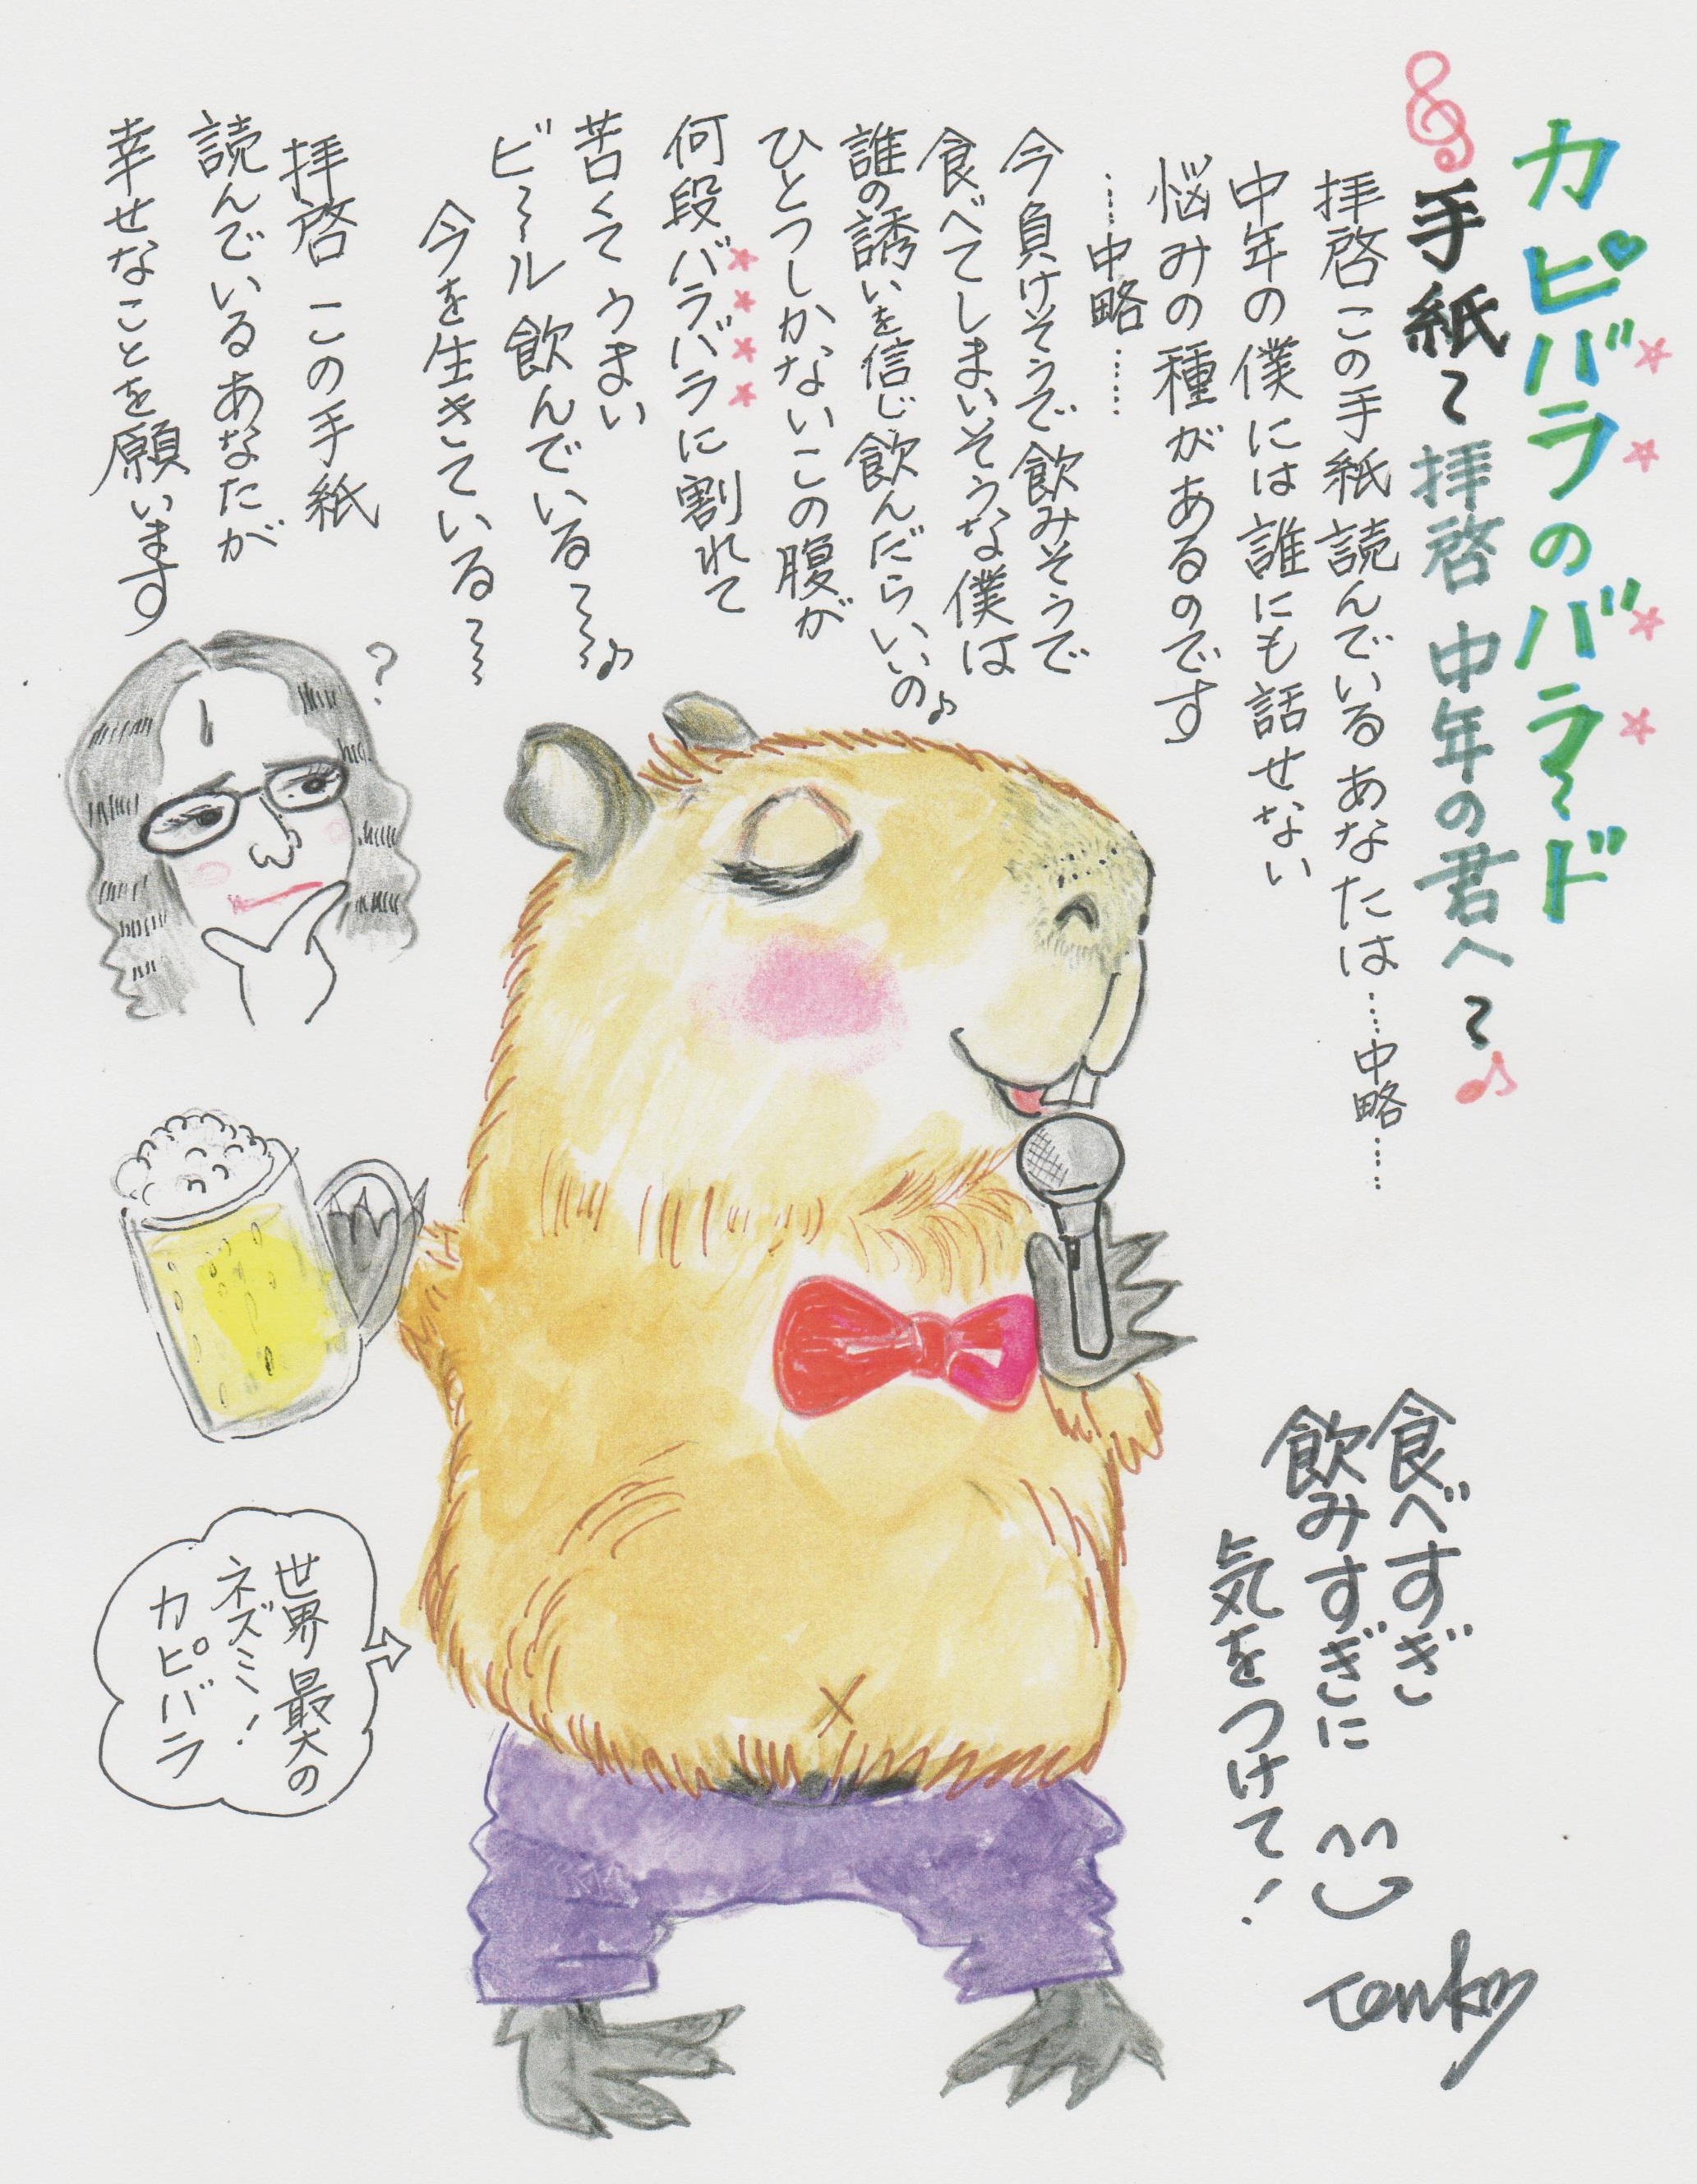 カピバラのバラ〜ド
手紙〜拝啓 中年の君へ〜
拝啓この手紙読んでいるあなたは……中略……
中年の僕には誰にも話せない
悩みの種があるのです
……中略……
今負けそうで飲みそうで
食べてしまいそうな僕は
誰の誘いを信じ飲んだらいいの♪
ひとつしかないこの腹が
何段バラバラに割れて
苦くて うまい
ビ〜ル 飲んでいる〜〜♪
今を生きている〜〜
拝啓 この手紙
読んでいるあなたが
幸せなことを願います
?
食べすぎ
飲みすぎに
気をつけて!
世界最大の
ネズミ!
カピバラ